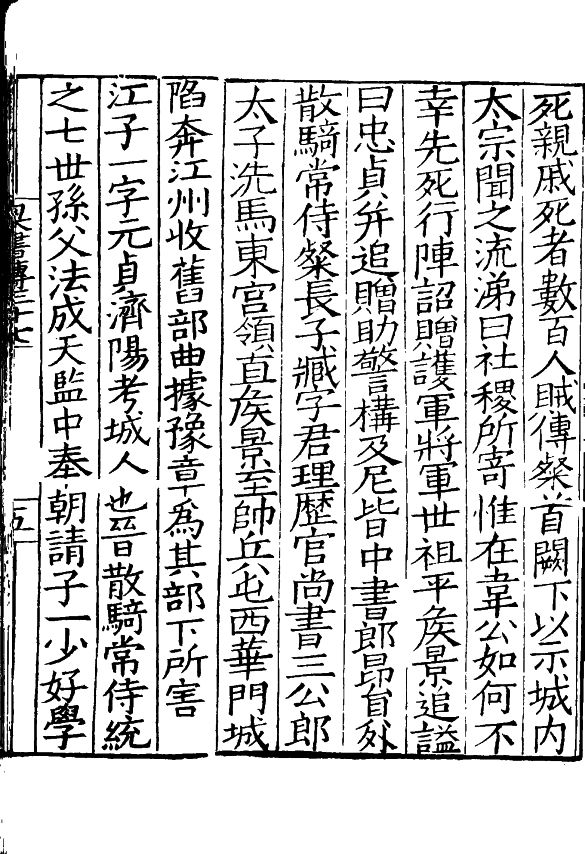 死親戚死者數百人賊傳粲首闕下以示城内
太宗聞之流涕曰社稷所寄惟在韋公如何不
幸先死行陣詔贈護軍將軍世祖平矦景追謚
曰忠貞并追贈助警構及尼皆中書郎昂貟外
散騎常侍粲長子臧字君理歴官尚書三公郎
太子洗馬東宫領直矦景至帥兵屯西華門城
陷奔江州收舊部曲據豫章爲其部下所害
江子一字元貞濟陽考城人也晉散騎常侍統
之七世孫父法成天監中奉朝請子一少好學
梁書傳三十七
五